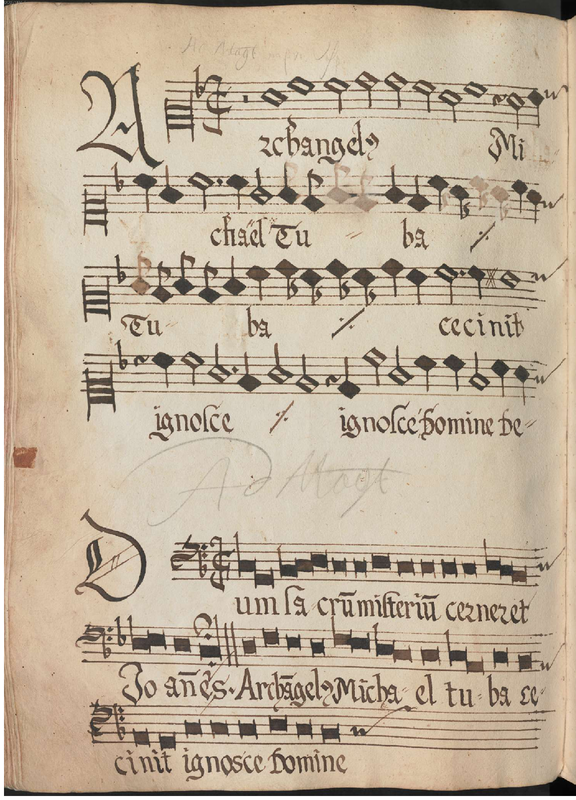 Archangelꝰ Mi
chael Tu ba ⁒
Tu ba ⁒ cecinit
ignosce ⁒ ignosce domine de-
Ad Magt
Dum sacrū misteriū cerneret
Joanēs. Archāgelꝰ Micha el tu ba ce
cinit ignosce domine